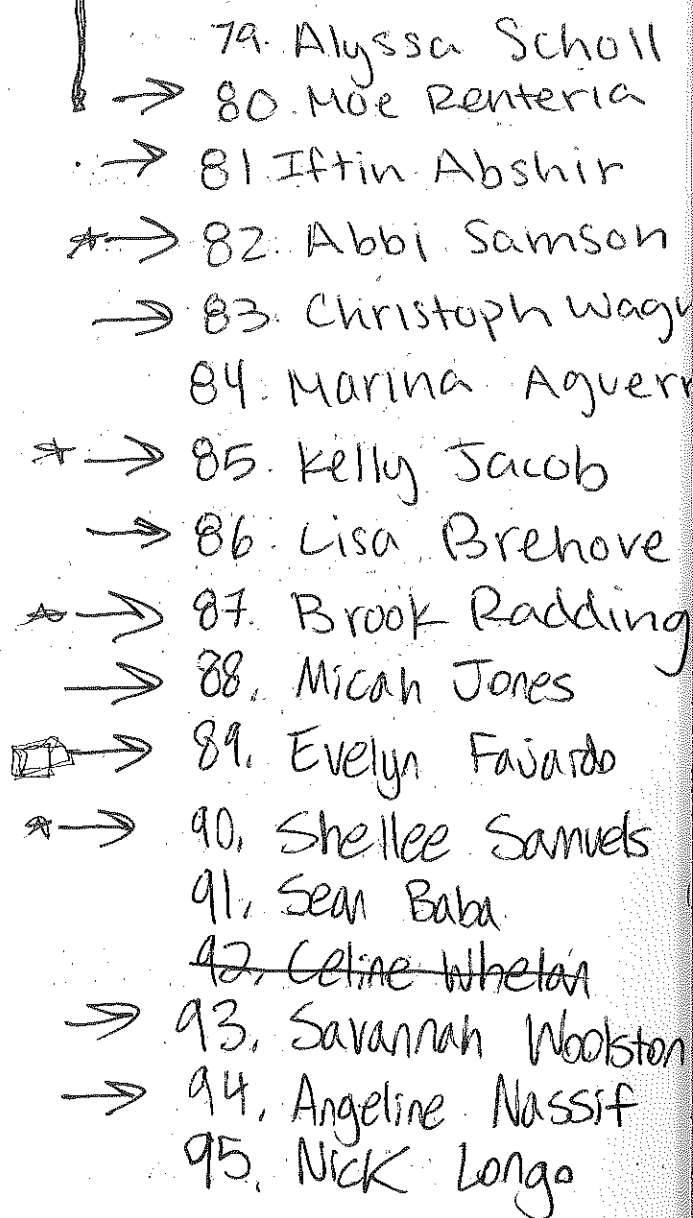 79. Alyssa Scholl
→ 80. Moe Renteria
→ 81 Iftin Abshir
☆→ 82. Abbi Samson
→ 83. Christoph Wagn
84. Marina Aguerr
☆→ 85. Kelly Jacob
→ 86. Lisa Brehove
☆→ 87. Brook Radding
→ 88. Micah Jones
→ 89. Evelyn Fajardo
☆→ 90. Shellee Samuels
91. Sean Baba
92. Celine Whelan
→ 93. Savannah Woolston
→ 94. Angeline Nassif
95. Nick Longo